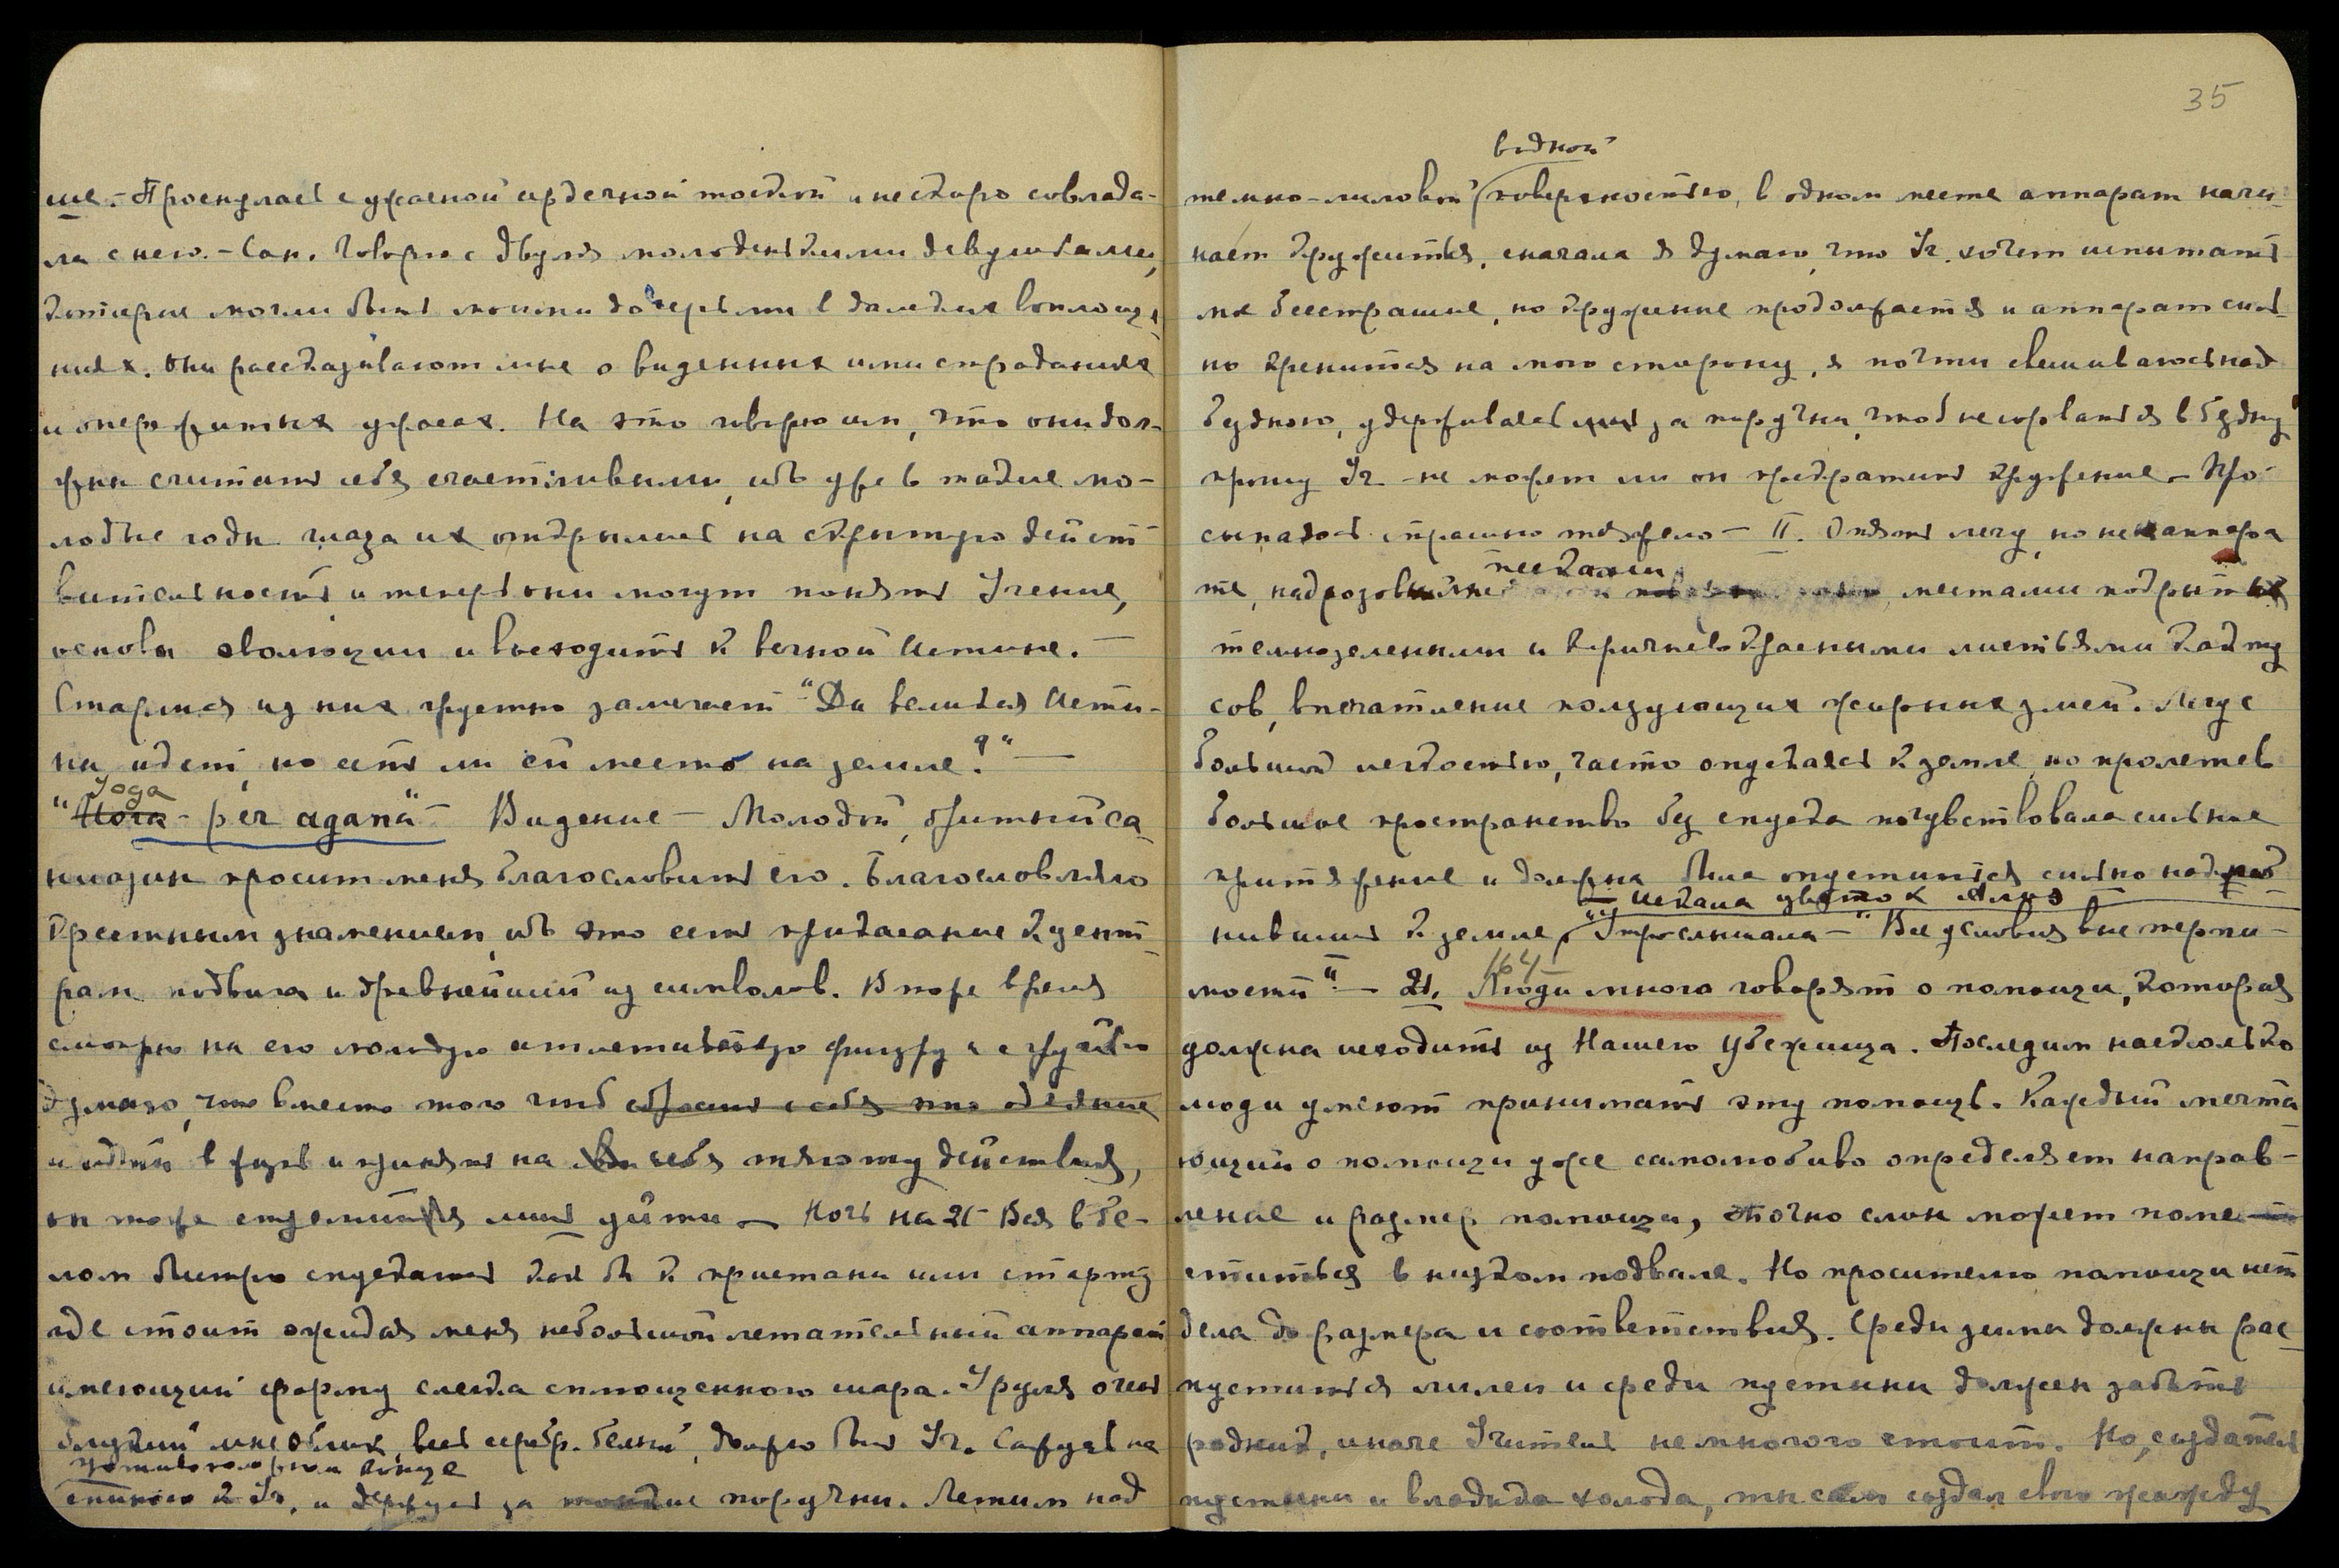 ше. – Проснулась с ужасной сердечной тоской и не скоро совлада-
ла с нею. – Сон. Говорю с двумя молоденькими девушками,
которые могли быть моими дочерьми в далеких воплоще-
ниях. Они рассказывают мне о виденных ими страданиях
и пережитых ужасах. На это говорю им, что они дол-
жны считать себя счастливыми, ибо уже в такие мо-
лодые годы глаза их открылись на скрытую дейст-
вительность и теперь они могут понять Учение,
основы эволюции и восходить к вечной Истине. –
Старшая из них грустно замечает "Да великая Исти-
на идет, но есть ли ей место на земле?" –
Yoga
"Йога - pér agapá" – Видение – Молодой, бритый са-
ниазин просит меня благословить его. Благословляю
крестным знамением, ибо это есть касание к цент-
рам подвига и древнейший из символов. В то же время
смотрю на его молодую атлетическую фигуру и с грустью
думаю, что вместо того чтоб сбросить с себя это одеяние
и идти в жизнь и принять на себя тяготу действия,
он тоже стремится лишь уйти – Ночь на 21 – Вся в бе-
лом быстро спускаюсь как бы к пристани или старту
где стоит ожидая меня небольшой летательный аппарат
имеющий форму слегка сплющенного шара. У руля очень
близкий мне облик, весь серебр. белый, должно быть Уч. Сажусь на
противоположном конце
спиною к Уч. и держусь за тонкие поручни. Летим над
35
водной
темно-лиловой поверхностью, в одном месте аппарат начи-
нает кружиться, сначала я думаю, что Уч. хочет испытать
мое бесстрашие, но кружение продолжается и аппарат силь-
но кренится на мою сторону, я почти свешиваюсь над
бездною, удерживаясь лишь за поручни, чтоб не сорваться в бездну
прошу Уч. – не может ли он прекратить кружение – Про-
сыпаюсь страшно тяжело – II. Опять лечу, но не в аппара
те, над розоватыми песками, местами покрытых
темнозелеными и коричнево-красными листьями как ту
сов, впечатление ползующих жирных змей. Лечу с
большой легкостью, часто опускаясь к земле, но пролетев
большое пространство без спуска почувствовала сильное
притяжение и должна была опуститься сильно
– искала цветок Алоэ –
нившись к земле, "Утро слышала – "Все условия вне терпи-
мости" – 21. 164 Люди много говорят о помощи, которая
должна исходить из Нашего Убежища. Последим насколько
люди умеют принимать эту помощь. Каждый мечта-
ющий о помощи уже самолюбиво определяет направ-
ление и размер помощи, точно слон может поме-
ститься в низком подвале. Но просителю помощи нет
дела до размера и соответствия. Среди зимы должны рас-
пуститься лилеи и среди пустыни должен забить
родник, иначе Учитель немногого стоит. Но, создатель
пустыни и владыка холода, ты сам создал свою жажду